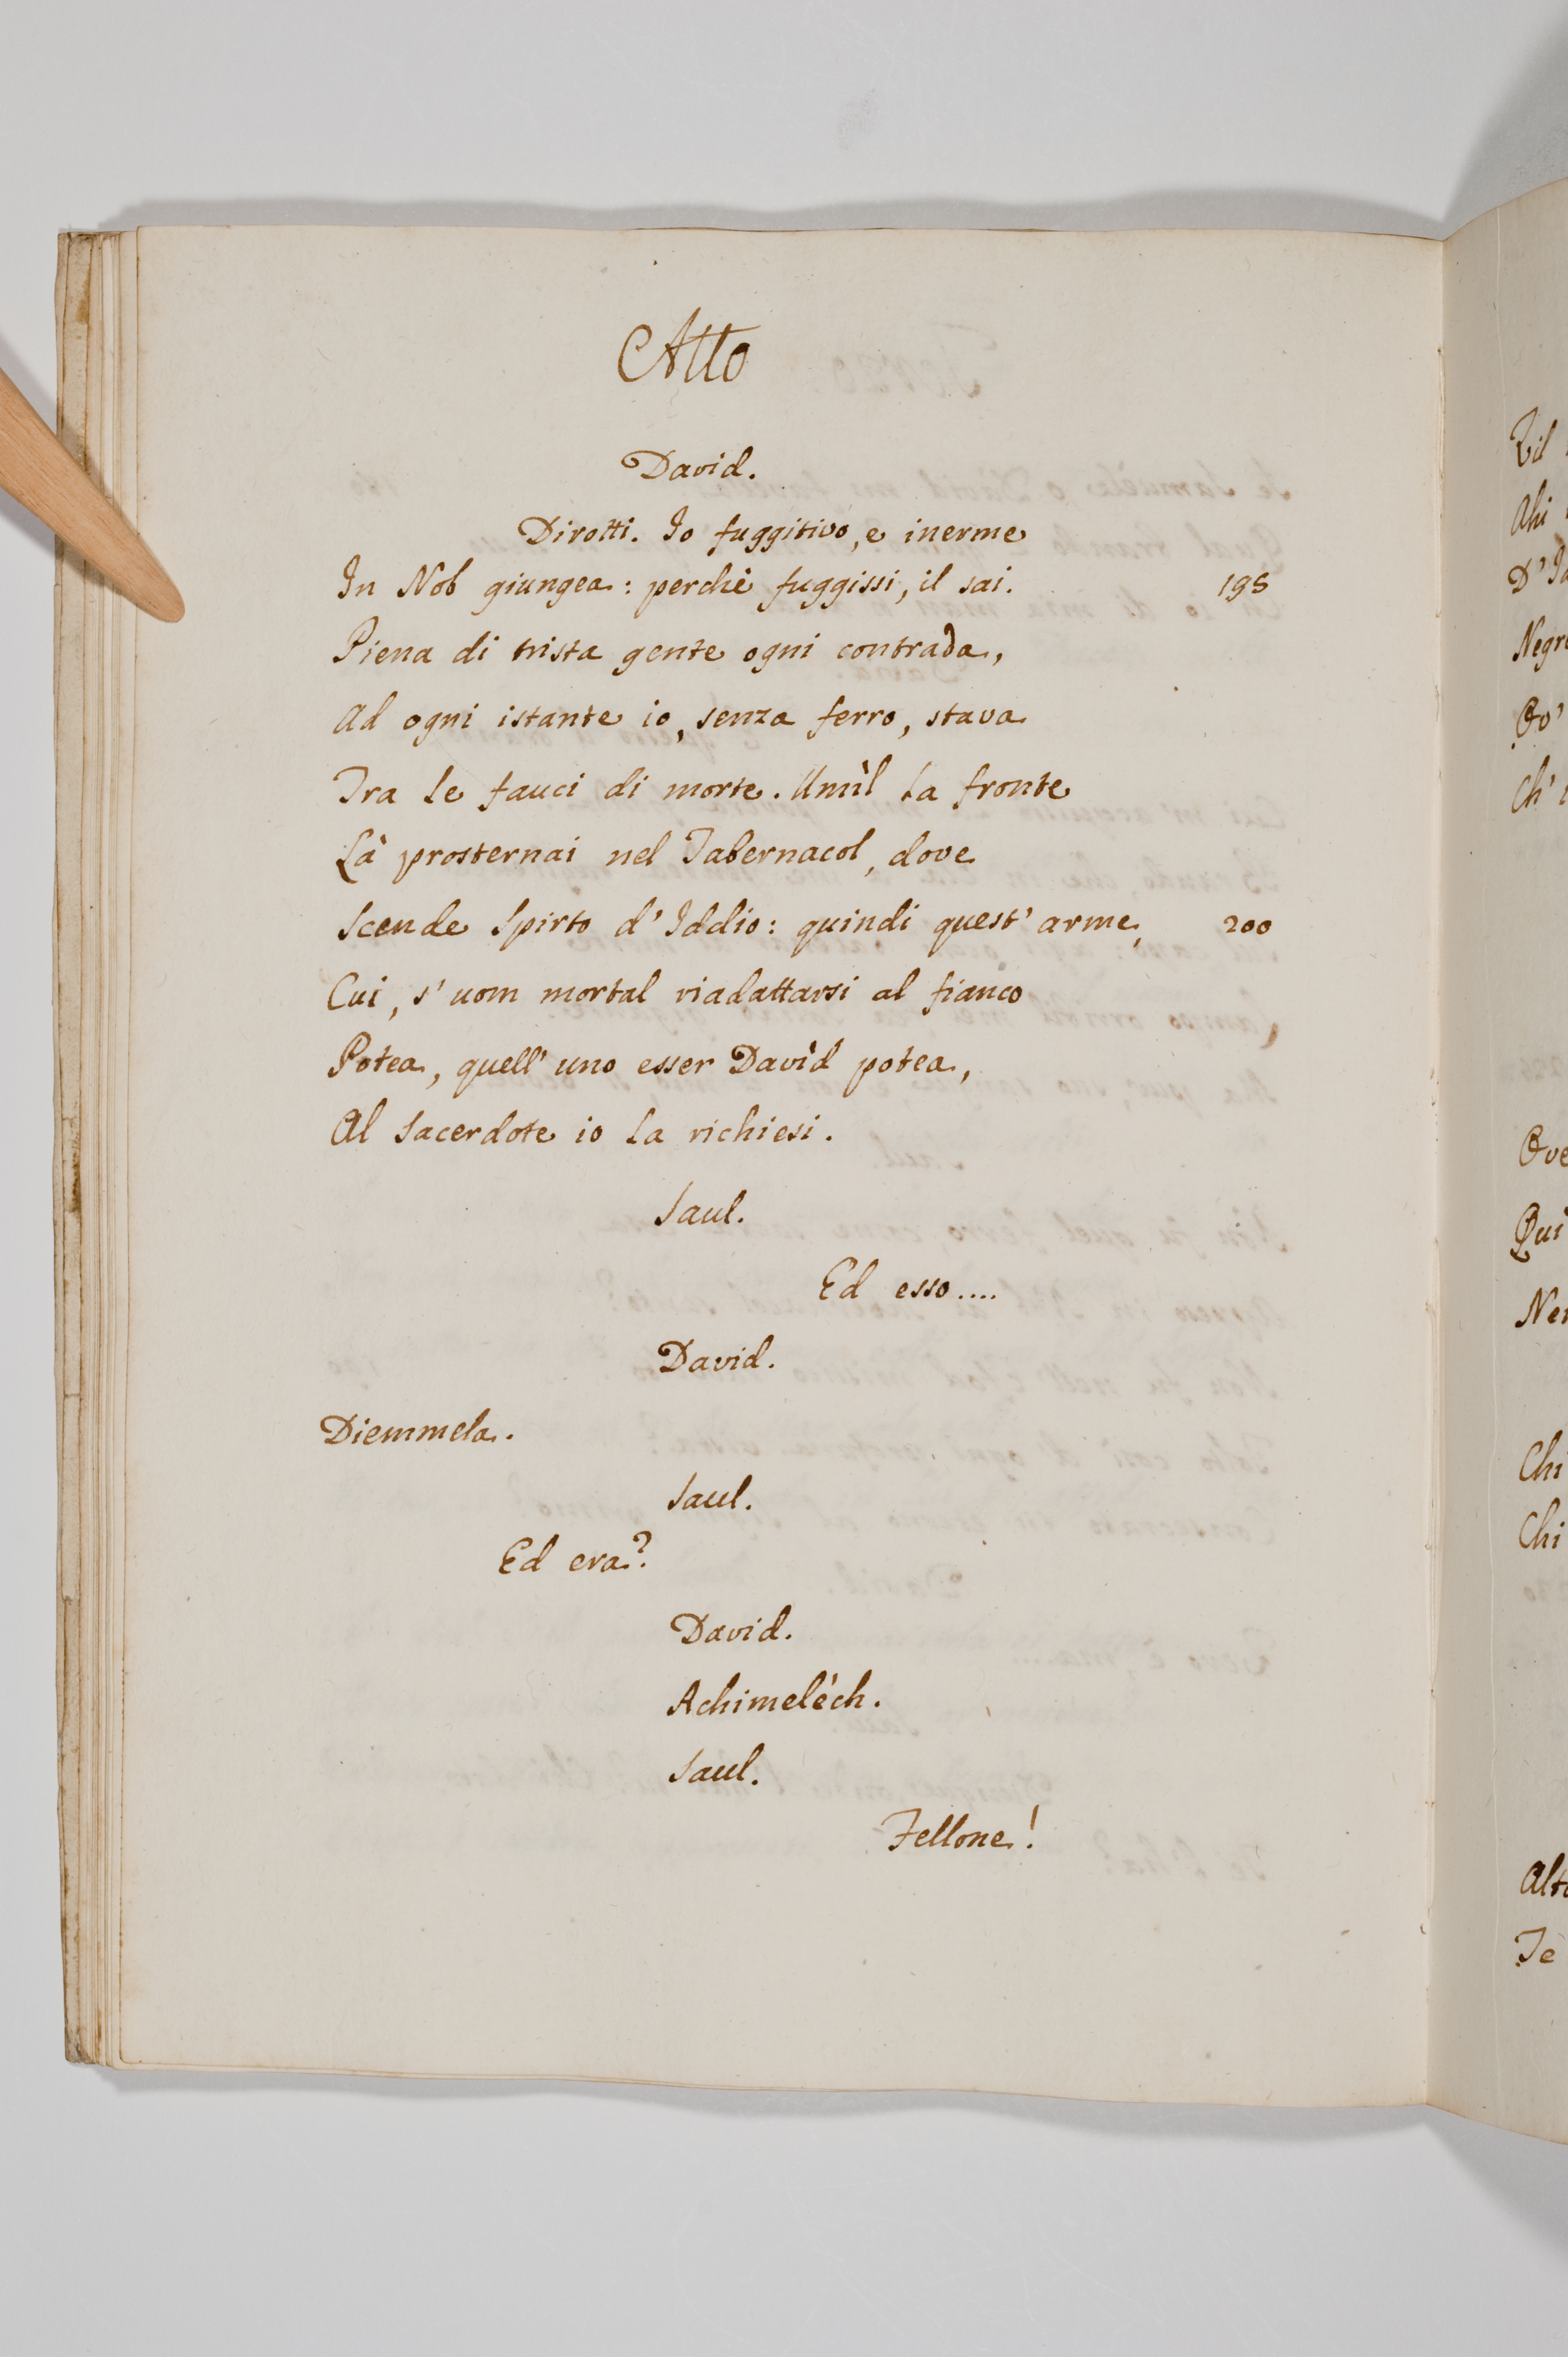 Atto
David.
Dirotti. Io fuggitivo, e inerme
In Nob giungea: perchè fuggissi, il sai. 195
Piena di trista gente ogni contrada,
Ad ogni istante io, senza ferro, stava
Tra le fauci di morte. Umìl la fronte
Là prosternai nel Tabernacol, dove
Scende Spirto d'Iddio: quindi quest'arme, 200
Cui, s'uom mortal riadattarsi al fianco
Potea, quell'uno esser Davìd potea,
Al Sacerdote io la richiesi.
Saul.
Ed esso....
David.
Diemmela.
Saul.
Ed era?
David.
Achimeléch.
Saul.
Fellone!
Ahi
D'
Negr
Ov'
Ch'
Ove
Qui
Ne
Chi
Chi
Alt
Te